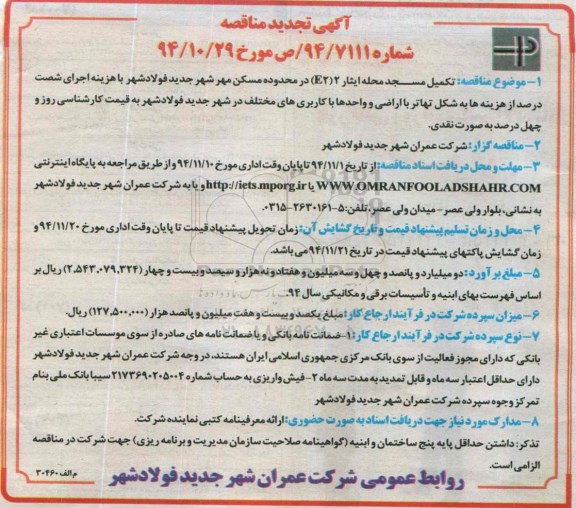 آگهی تجدید مناقصه
شماره ۹۴/۷۱۱۱/ص مورخ ۹۴/۱۰/۲۹
۱- موضوع مناقصه: تکمیل مسـجد محله ایثار ۲ (E۲) در محدوده مسکن مهر شهر جدید فولادشهر با هزینه اجرای شصت
درصد از هزینه ها به شکل تهاتر با اراضی و واحدها با کاربری های مختلف در شهر جدید فولادشهر به قیمت کارشناسی روز و
چهل درصد به صورت نقدی.
۲- مناقصه گزار: شرکت عمران شهر جدید فولادشهر
۳- مهلت و محل دریافت اسناد مناقصه: از تاریخ ۹۴/۱۱/۱ تا پایان وقت اداری مورخ ۹۴/۱۱/۱۰ و از طریق مراجعه به پایگاه اینترنتی
WWW.OMRANFOOLADSHAHR.COM یا http://iets.mporg.ir و یا به شرکت عمران شهر جدید فولادشهر
به نشانی، بلوار ولی عصر - میدان ولی عصر، تلفن: ۵-۲۶۳۰۱۶۱-۰۳۱۵
۴- محل و زمان تسلیم پیشنهاد قیمت و تاریخ گشایش آن: زمان تحویل پیشنهاد قیمت تا پایان وقت اداری مورخ ۹۴/۱۱/۲۰ و
زمان گشایش پاکتهای پیشنهاد قیمت در تاریخ ۹۴/۱۱/۲۱ می باشد.
۵- مبلغ برآورد: دو میلیارد و پانصد و چهل و سه میلیون و هفتاد و نه هزار و سیصد و بیست و چهار (۲,۵۴۳,۰۷۹,۳۲۴) ریال بر
اساس فهرست بهای ابنیه و تأسیسات برقی و مکانیکی سال ۹۴.
۶- میزان سپرده شرکت در فرآیند ارجاع کار: مبلغ یکصد و بیست و هفت میلیون و پانصد هزار (۱۲۷,۵۰۰,۰۰۰) ریال.
۷- نوع سپرده شرکت در فرآیند ارجاع کار: ۱- ضمانت نامه بانکی و یا ضمانت نامه های صادره از سوی موسسات اعتباری غیر
بانکی که دارای مجوز فعالیت از سوی بانک مرکزی جمهوری اسلامی ایران هستند، در وجه شرکت عمران شهر جدید فولادشهر
دارای حداقل اعتبار سه ماه و قابل تمدید به مدت سه ماه ۲- فیش واریزی به حساب شماره ۲۱۷۳۶۹۰۲۰۵۰۰۴ سیبا بانک ملی بنام
تمرکز وجوه سپرده شرکت عمران شهر جدید فولادشهر
۸- مدارک مورد نیاز جهت دریافت اسناد به صورت حضوری: ارائه معرفینامه کتبی نماینده شرکت.
تذکر: داشتن حداقل پایه پنج ساختمان و ابنیه (گواهینامه صلاحیت سازمان مدیریت و برنامه ریزی) جهت شرکت در مناقصه
الزامی است.
روابط عمومی شرکت عمران شهر جدید فولادشهر
م الف ۳۰۴۶۰